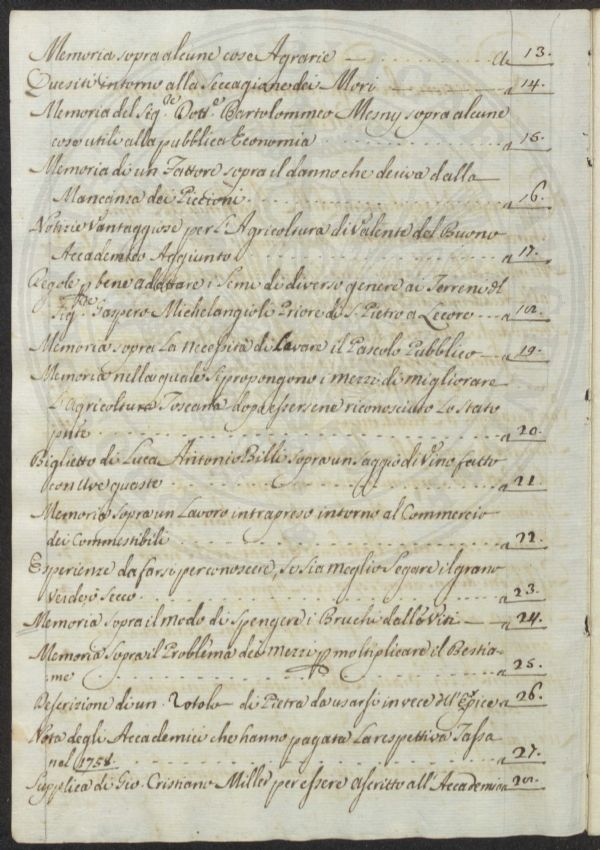 Memoria sopra alcune cose Agrarie a 13.
Quesiti intorno alla Seccagione dei Mori a 14.
Memoria del Sig.re Dott.e Bartolommeo Mesny sopra alcune
cose utili alla pubblica Economia a 15.
Memoria di un Fattore sopra il danno che deriva dalla
Mancanza dei Piccioni a 16.
Notizie Vantaggiose per l'Agricoltura di Valente del Buono
Accademico Aggiunto a 17.
Regole p bene adattare i Semi di diverso genere ai Terreni del
Sig.re Gaspero Michelangioli Priore di S. Pietro a Lecore a
Memoria sopra La necessità di Levare il Pascolo Pubblico a 19.
Memoria nella quale si propongono i mezzi di migliorare
L'Agricoltura Toscana dopo essersene riconosciuto Lo Stato
pnte a 20.
Biglietto di Luca Antonio Billi sopra un saggio di Vino fatto
con Uve guaste a 21.
Memoria sopra un Lavoro intrapreso intorno al Commercio
dei Commestibili a 22.
Esperienze da farsi per conoscere, se sia meglio Segare il grano
Verde, o Secco a 23.
Memoria sopra il modo di Spengere i Bruchi dalle Viti a 24.
Memoria Sopra il Problema dei mezzi p moltiplicare il Bestia-
me a 25.
Descrizione di un Rotolo di Pietra da usarsi in vece dell' a 26.
Nota degli Accademici che hanno pagata La respettiva Tassa
nel 1758. a 27.
Supplica di Gio. Cristiano Miller per essere ascritto all'Accademia